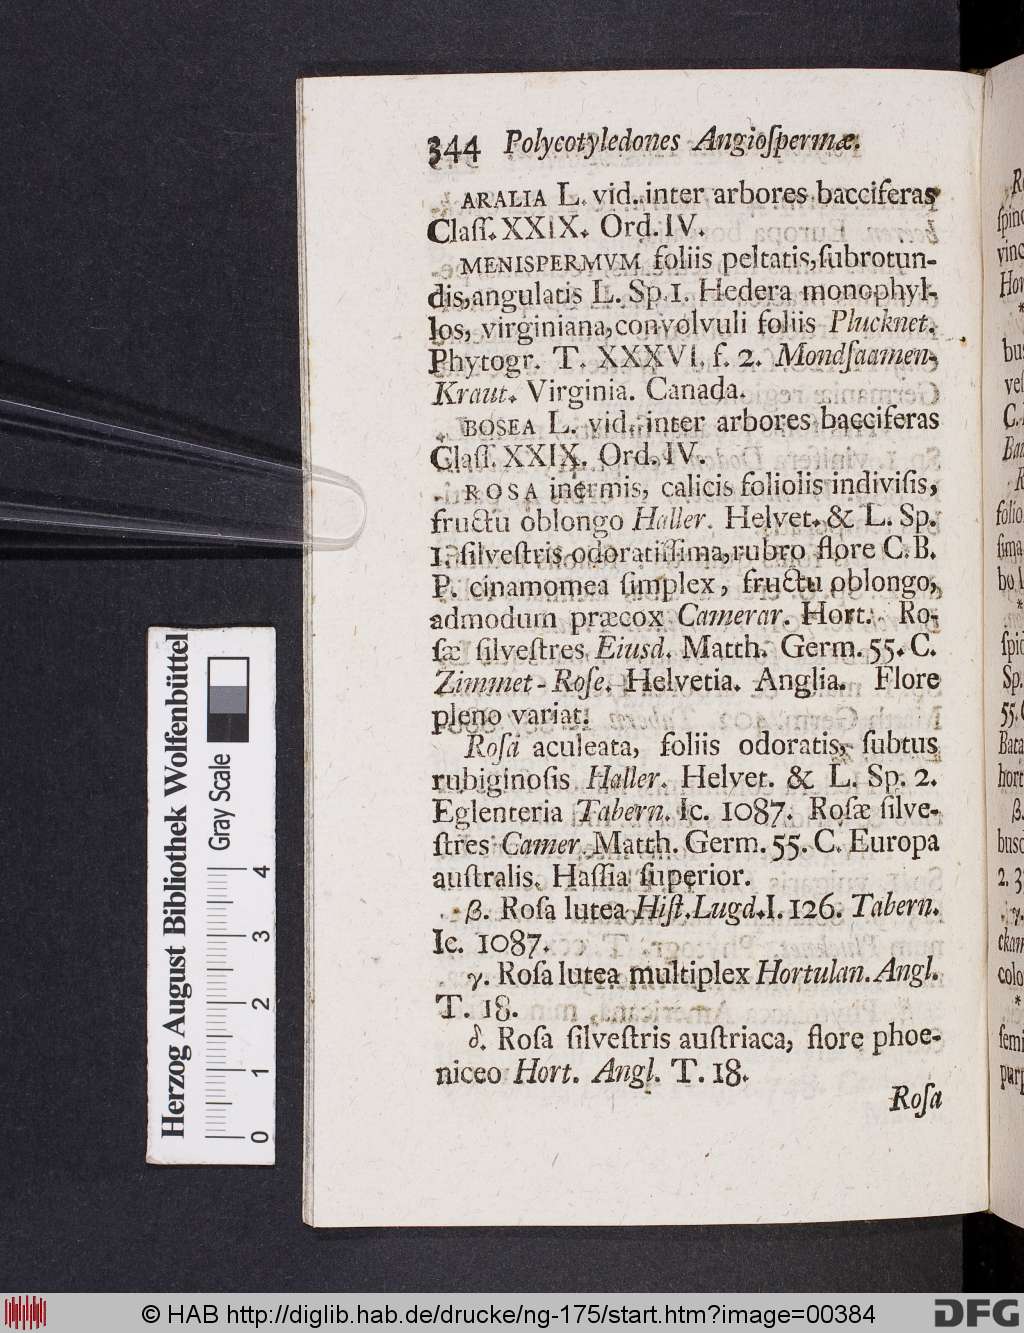 344 Polycotyledones Angioſpermæ.
ARALIA L. vid. inter arbores bacciferas
Claſſ. XXIX. Ord. IV.
MENISPERMVM foliis peltatis, ſubrotun-
dis, angulatis L. Sp. 1. Hedera monophyl-
los, virginiana, convolvuli foliis Plucknet.
Phytogr. T. XXXVI. f. 2. Mondſaamen-
Kraut. Virginia. Canada.
BOSEA L. vid. inter arbores bacciferas
Claſſ. XXIX. Ord. IV.
ROSA inermis, calicis foliolis indiviſis,
fructu oblongo Haller. Helvet. & L. Sp.
1. ſilveſtris odoratiſſima, rubro flore C. B.
P. cinamomea ſimplex, fructu oblongo,
admodum præcox Camerar. Hort. Ro-
ſæ ſilveſtres Eiusd. Matth. Germ. 55. C.
Zimmet-Roſe. Helvetia. Anglia. Flore
pleno variat.
Roſa aculeata, foliis odoratis, ſubtus
rubiginoſis Haller. Helvet. & L. Sp. 2.
Eglenteria Tabern. Ic. 1087. Roſæ ſilve-
ſtres Camer. Matth. Germ. 55. C. Europa
auſtralis. Haſſia ſuperior.
β. Roſa lutea Hiſt. Lugd. I. 126. Tabern.
Ic. 1087.
γ. Roſa lutea multiplex Hortulan. Angl.
T. 18.
δ. Roſa ſilveſtris auſtriaca, flore phoe-
niceo Hort. Angl. T. 18.
Roſa
Herzog August Bibliothek Wolfenbüttel
Gray Scale
0 1 2 3 4
© HAB http://diglib.hab.de/drucke/ng-175/start.htm?image=00384
DFG